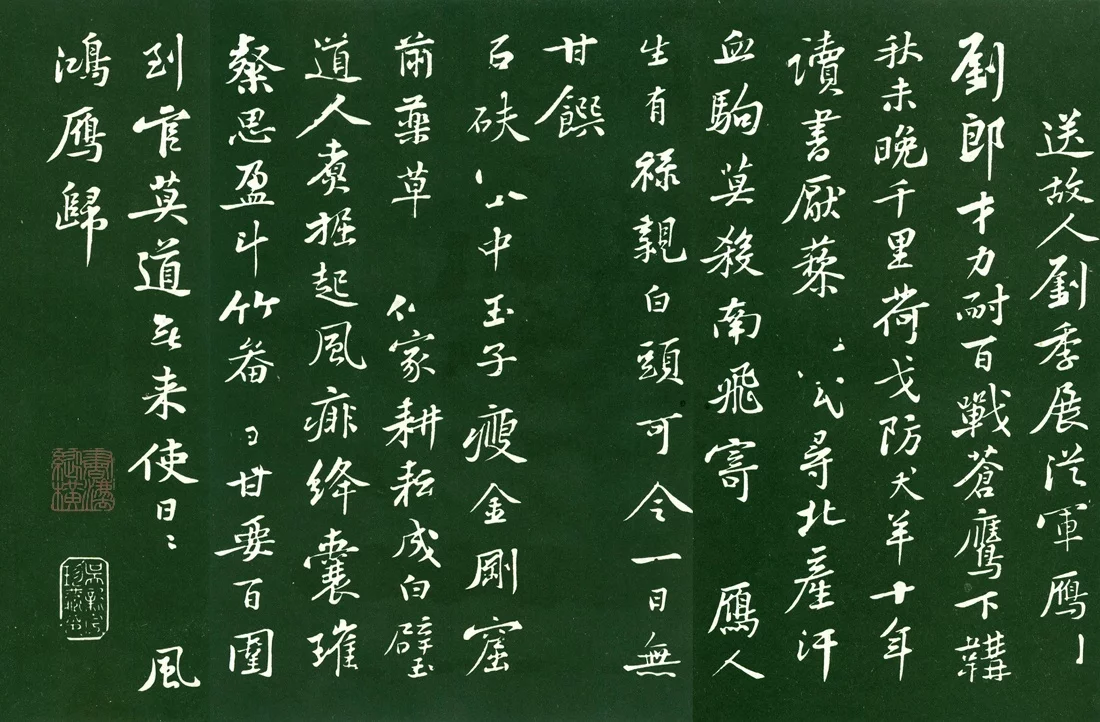 送故人劉季展從軍鴈
劉郎才力耐百戰蒼鷹下韝
秋未晚千里荷戈防犬羊十年
讀書厭藜尋北產汗
血駒莫殺南飛寄鴈人
生有祿親白頭可令一日無
甘饌
石砆中玉子瘦金剛窟
前藥草家耕耘成白璧
道人煮掘起風痱絳囊璀
粲思盈斗竹畚甘要百圍
到官莫道無来使日〻風
鴻鴈歸